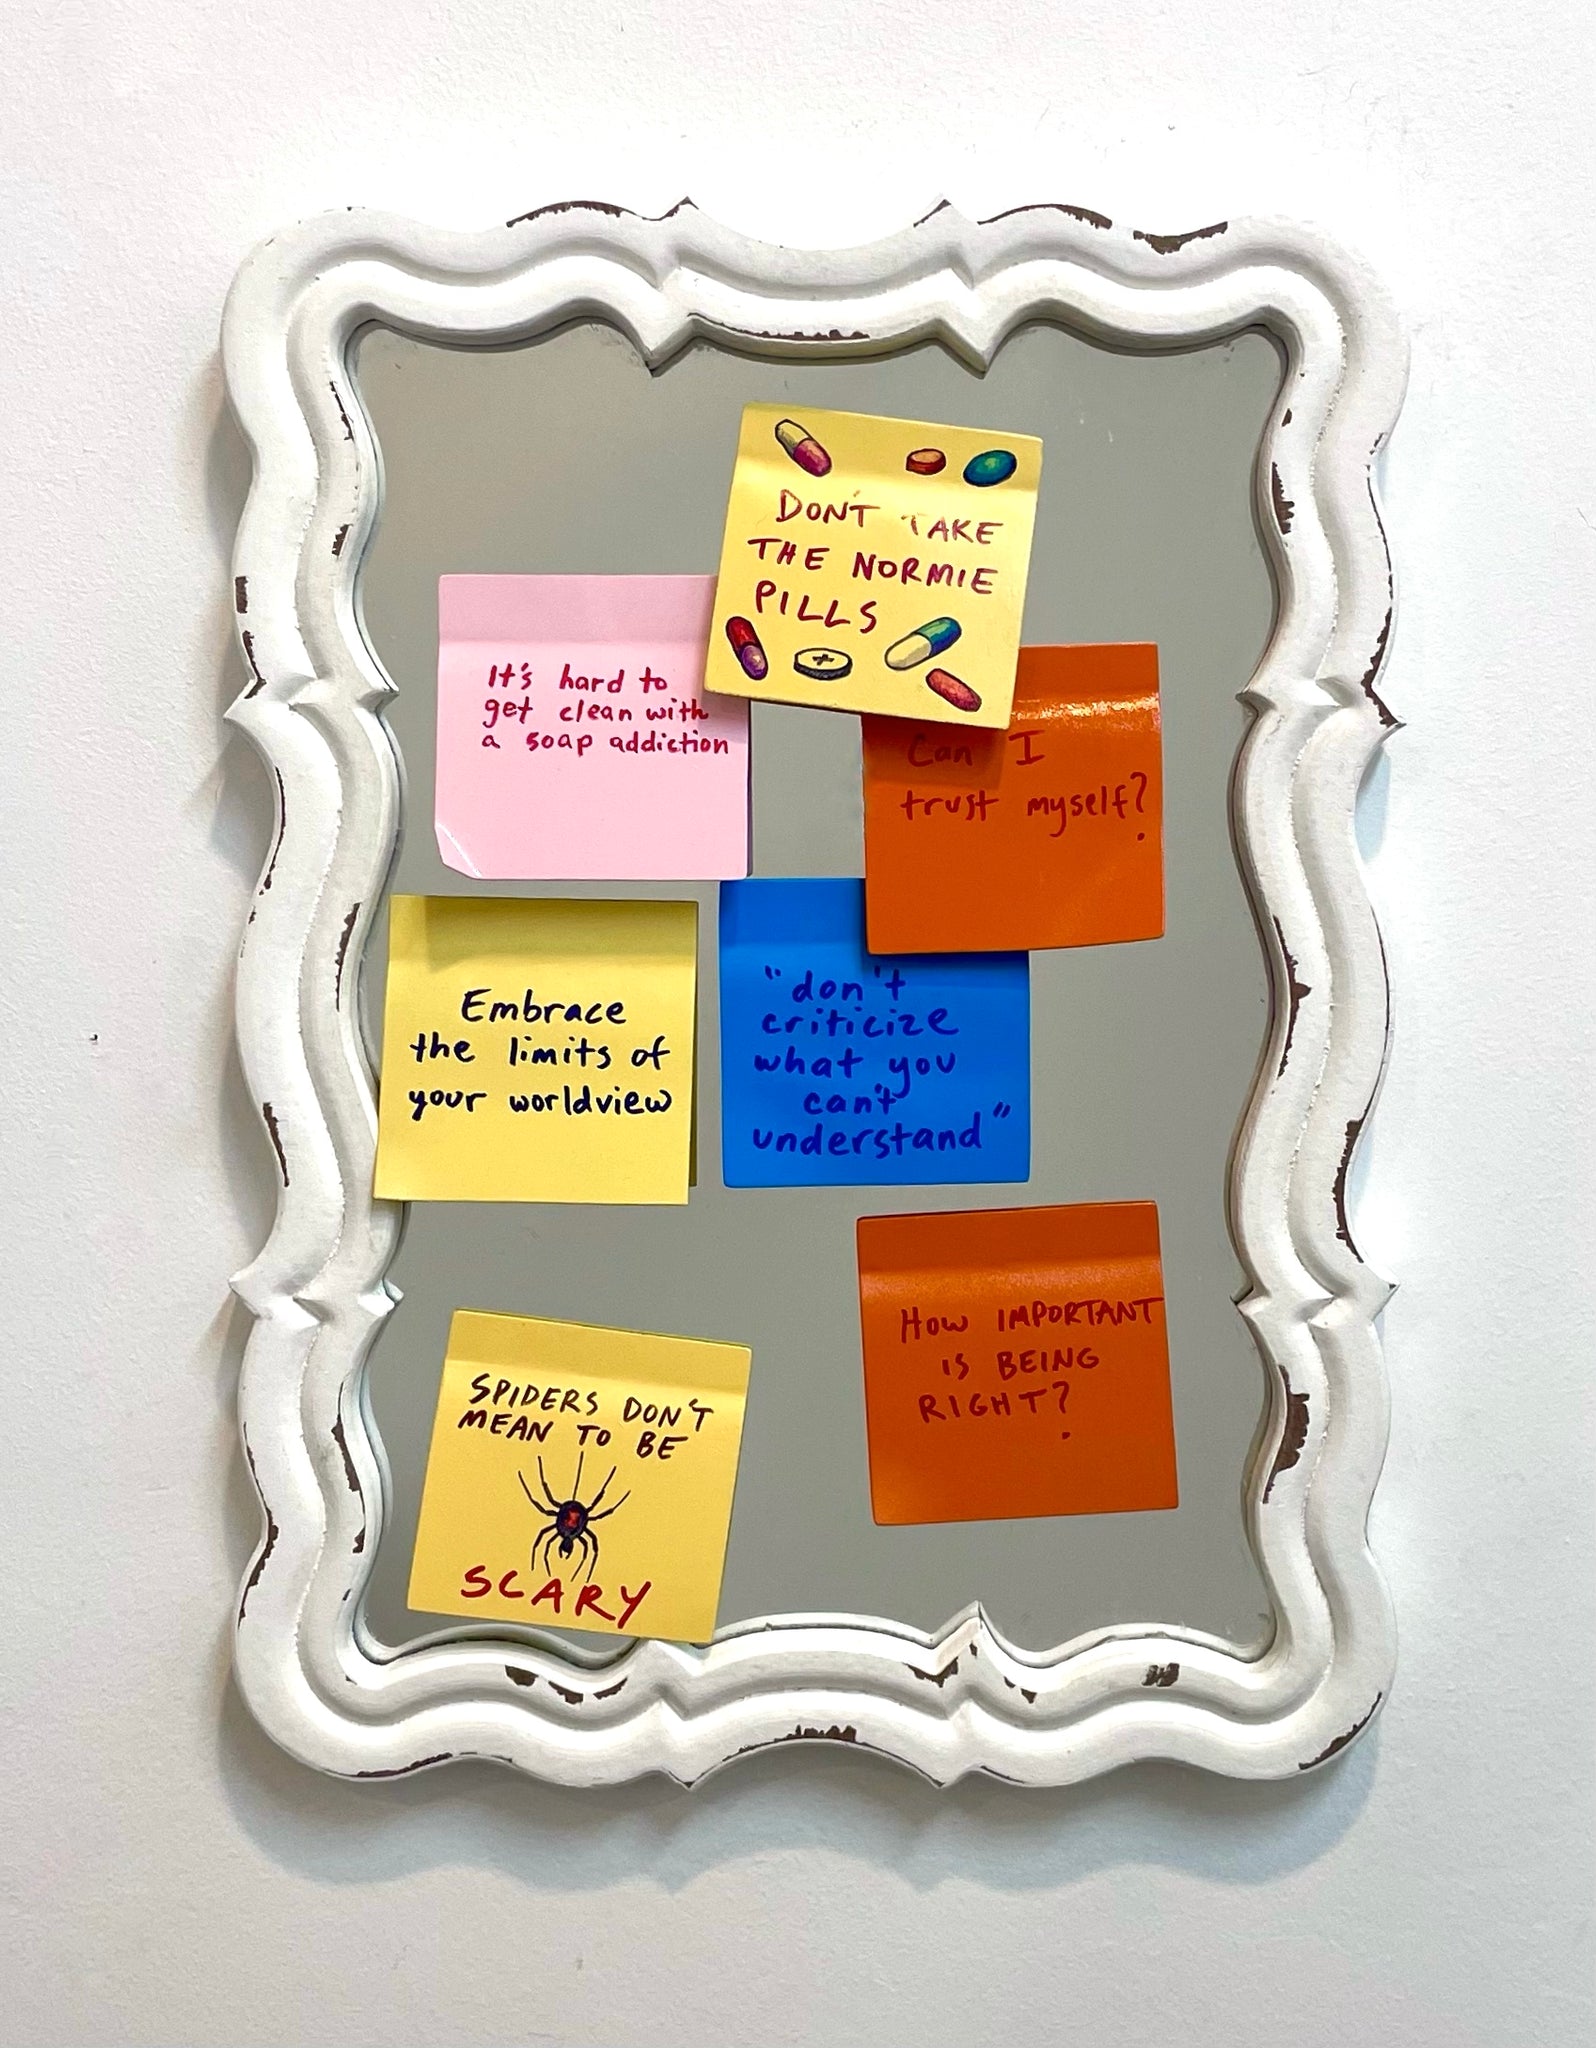 DON'T TAKE
THE NORMIE
PILLS
It's hard to
get clean with
a soap addiction
Can I
trust myself?
Embrace
the limits of
your worldview
"don't
criticize
what you
can't
understand"
SPIDERS DON'T
MEAN TO BE
SCARY
HOW IMPORTANT
IS BEING
RIGHT?